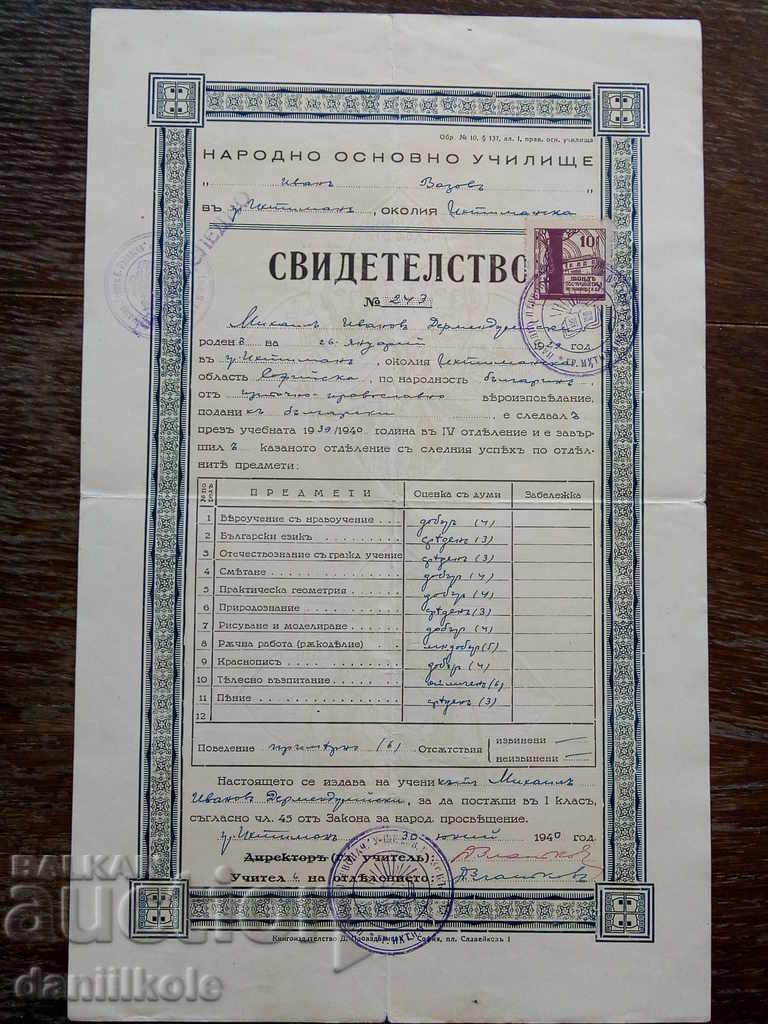 Обр. № 10, § 137, ал. 1, прав. осн. училища
НАРОДНО ОСНОВНО УЧИЛИЩЕ
„ Иванъ Вазовъ “
въ гр. Ихтиманъ, околия Ихтиманска
СВИДЕТЕЛСТВО
10
№ 243
Михаилъ Ивановъ
роденъ на 26 януарий 1929 год.
въ гр. Ихтиманъ, околия Ихтиманска
область Софийска, по народность българинъ,
отъ източно-православно вѣроизповѣдание,
подани къ български, е следвалъ
презъ учебната 1939/1940 година въ IV отдѣление и е завър-
шилъ казаното отдѣление съ следния успѣхъ по отдѣл-
нитѣ предмети:
№ по редъ ПРЕДМЕТИ Оценка съ думи Забележка
1 Вѣроучение съ нравоучение добъръ (4)
2 Български езикъ срѣденъ (3)
3 Отечествознание съ гражд. учение срѣденъ (3)
4 Смѣтане добъръ (4)
5 Практическа геометрия добъръ (4)
6 Природознание срѣденъ (3)
7 Рисуване и моделиране добъръ (4)
8 Рѫчна работа (рѫкодѣлие) мн. добъръ (5)
9 Краснописъ добъръ (4)
10 Тѣлесно възпитание отличенъ (6)
11 Пѣние срѣденъ (3)
12
Поведение примѣрно (6) Отсѫтствия извинени —
неизвинени —
Настоящето се издава на ученикътъ Михаилъ
Ивановъ, за да постѫпи въ I класъ,
съгласно чл. 45 отъ Закона за народ. просвѣщение.
гр. Ихтиманъ 30 юний 1940 год.
Директоръ (гл. учитель):
Учител на отдѣлението:
Книгоиздателство Д. София, пл. Славейковъ 1
BALKAN
auction
daniilkole